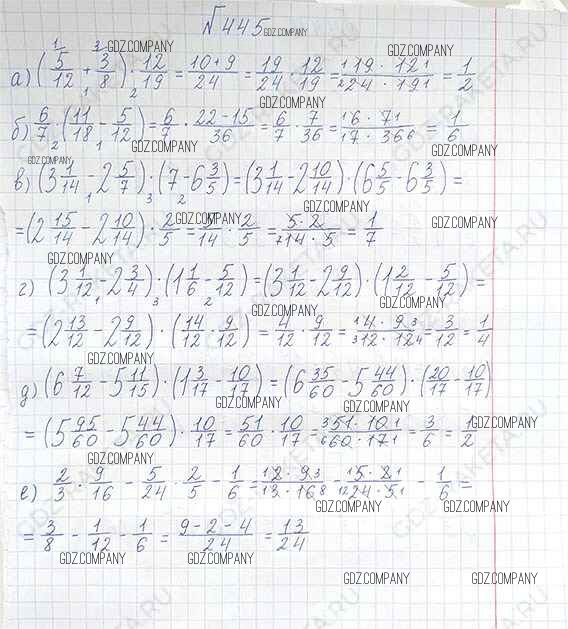 № 445
а) (5/12 + 3/8) · 12/19 = 10+9/24 = 19/24 · 12/19 = 19 · 12/24 · 19 = 1/2
б) 6/7 · (11/18 - 5/12) = 6/7 · 22-15/36 = 6/7 · 7/36 = 6 · 7/7 · 36 = 1/6
в) (3 1/14 - 2 5/7) · (7 - 6 3/5) = (3 1/14 - 2 10/14) · (6 5/5 - 6 3/5) =
= (2 15/14 - 2 10/14) · 2/5 = 5/14 · 2/5 = 5 · 2/14 · 5 = 1/7
г) (3 1/12 - 2 3/4) · (1 1/6 - 5/12) = (3 1/12 - 2 9/12) · (1 2/12 - 5/12) =
= (2 13/12 - 2 9/12) · (14/12 · 9/12) = 4/12 · 9/12 = 4 · 9/12 · 12 = 3/12 = 1/4
д) (6 7/12 - 5 11/15) · (1 3/17 - 10/17) = (6 35/60 - 5 44/60) · (20/17 - 10/17)
= (5 95/60 - 5 44/60) · 10/17 = 51/60 · 10/17 = 51 · 10/60 · 17 = 3/6 = 1/2
е) 2/3 · 9/16 - 5/24 · 2/5 - 1/6 = 2 · 9/3 · 16 - 5 · 2/24 · 5 - 1/6 =
= 3/8 - 1/12 - 1/6 = 9-2-4/24 = 13/24
GDZ.COMPANY